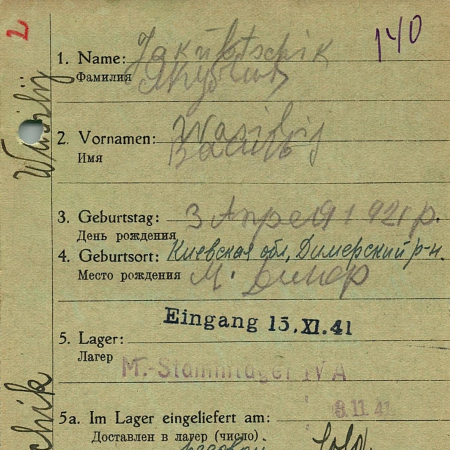 2
140
1. Name: Jakubtschik
Фамилия
Wasilij
2. Vornamen: Wasilij
Имя Василь
3. Geburtstag: 3 Апреля 1921 г.
День рождения
4. Geburtsort: Киевская обл, Димерский р-н.
Место рождения м. Димер
Eingang 15. XI. 41
5. Lager:
Лагерь
M.-Stammlager IV A
8.11.41
5a. Im Lager eingeliefert am:
Доставлен в лагерь (число) Sold.